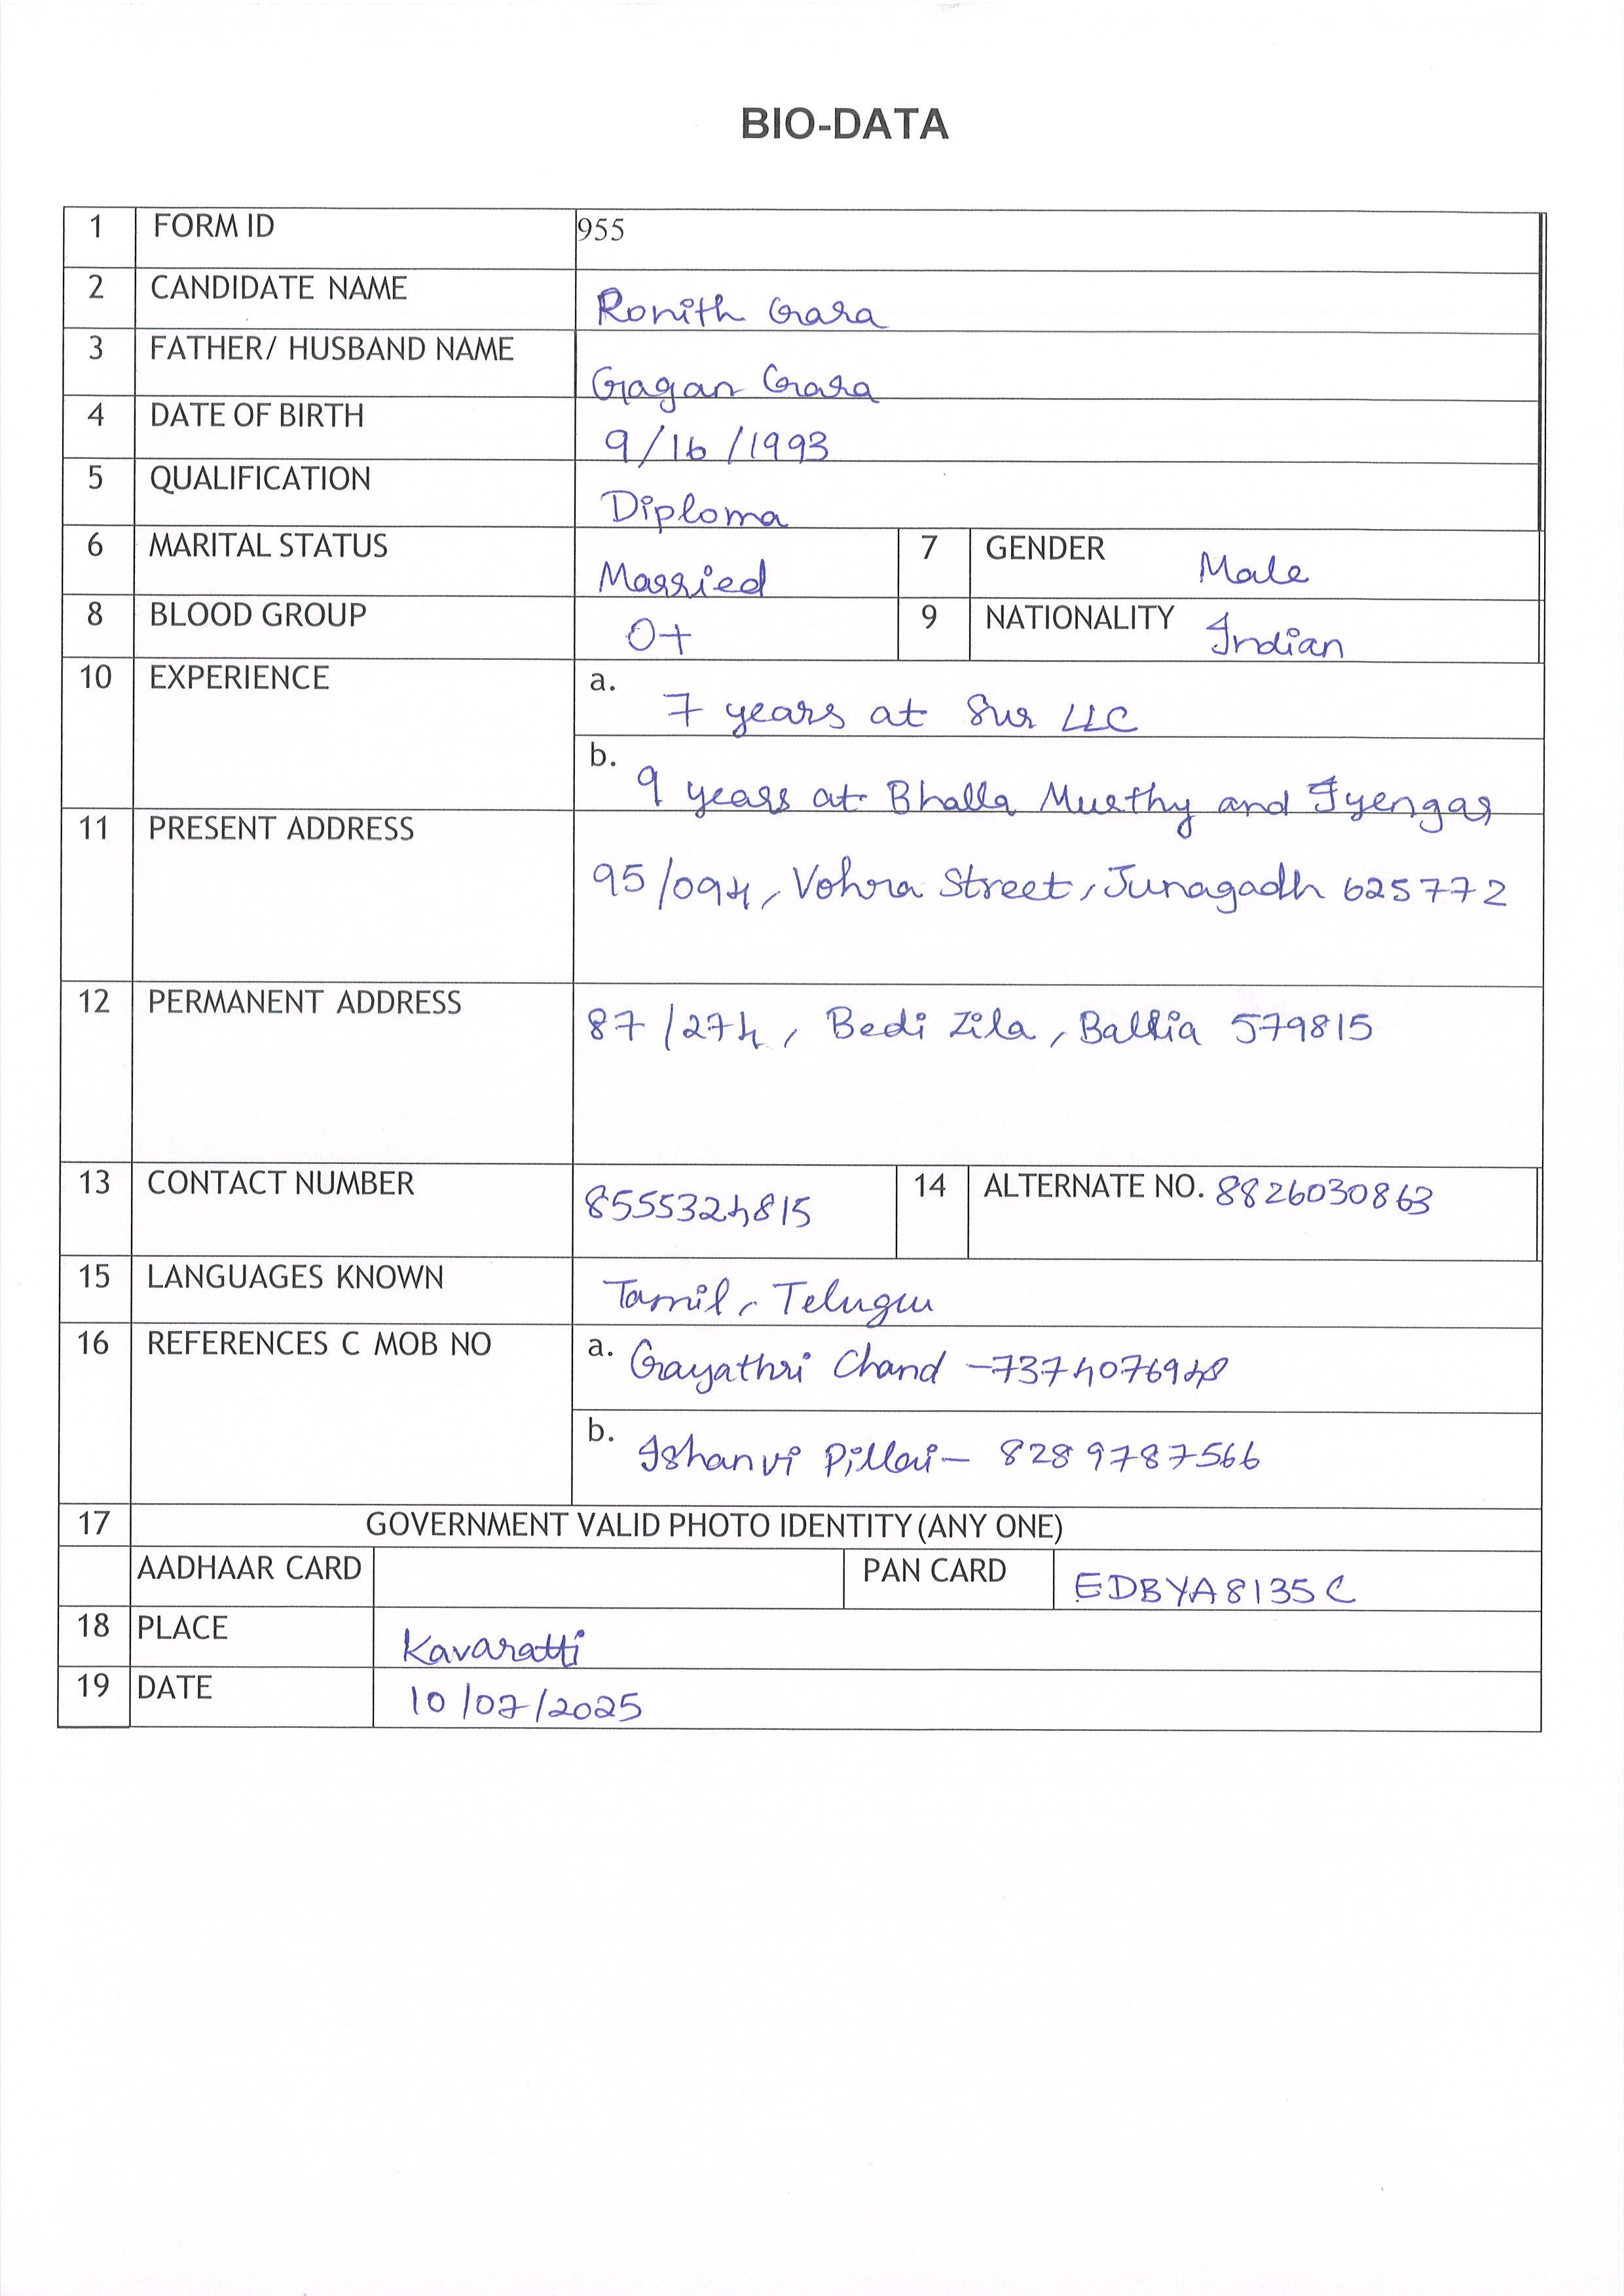 BIO-DATA
1 FORM ID 955
2 CANDIDATE NAME Ronith Gara
3 FATHER/ HUSBAND NAME Gagan Gara
4 DATE OF BIRTH 9/16/1993
5 QUALIFICATION Diploma
6 MARITAL STATUS Married 7 GENDER Male
8 BLOOD GROUP O+ 9 NATIONALITY Indian
10 EXPERIENCE a. 7 years at Sur LLC
b. 9 years at Bhalla Murthy and Iyengar
11 PRESENT ADDRESS 95/094, Vohra Street, Junagadh 625772
12 PERMANENT ADDRESS 87/274, Bedi Zila, Ballia 579815
13 CONTACT NUMBER 8555324815 14 ALTERNATE NO. 8826030863
15 LANGUAGES KNOWN Tamil, Telugu
16 REFERENCES C MOB NO a. Gayathri Chand -7374076948
b. Ishanvi Pillai- 8289787566
17 GOVERNMENT VALID PHOTO IDENTITY (ANY ONE)
AADHAAR CARD PAN CARD EDBYA8135C
18 PLACE Kavaratti
19 DATE 10/07/2025